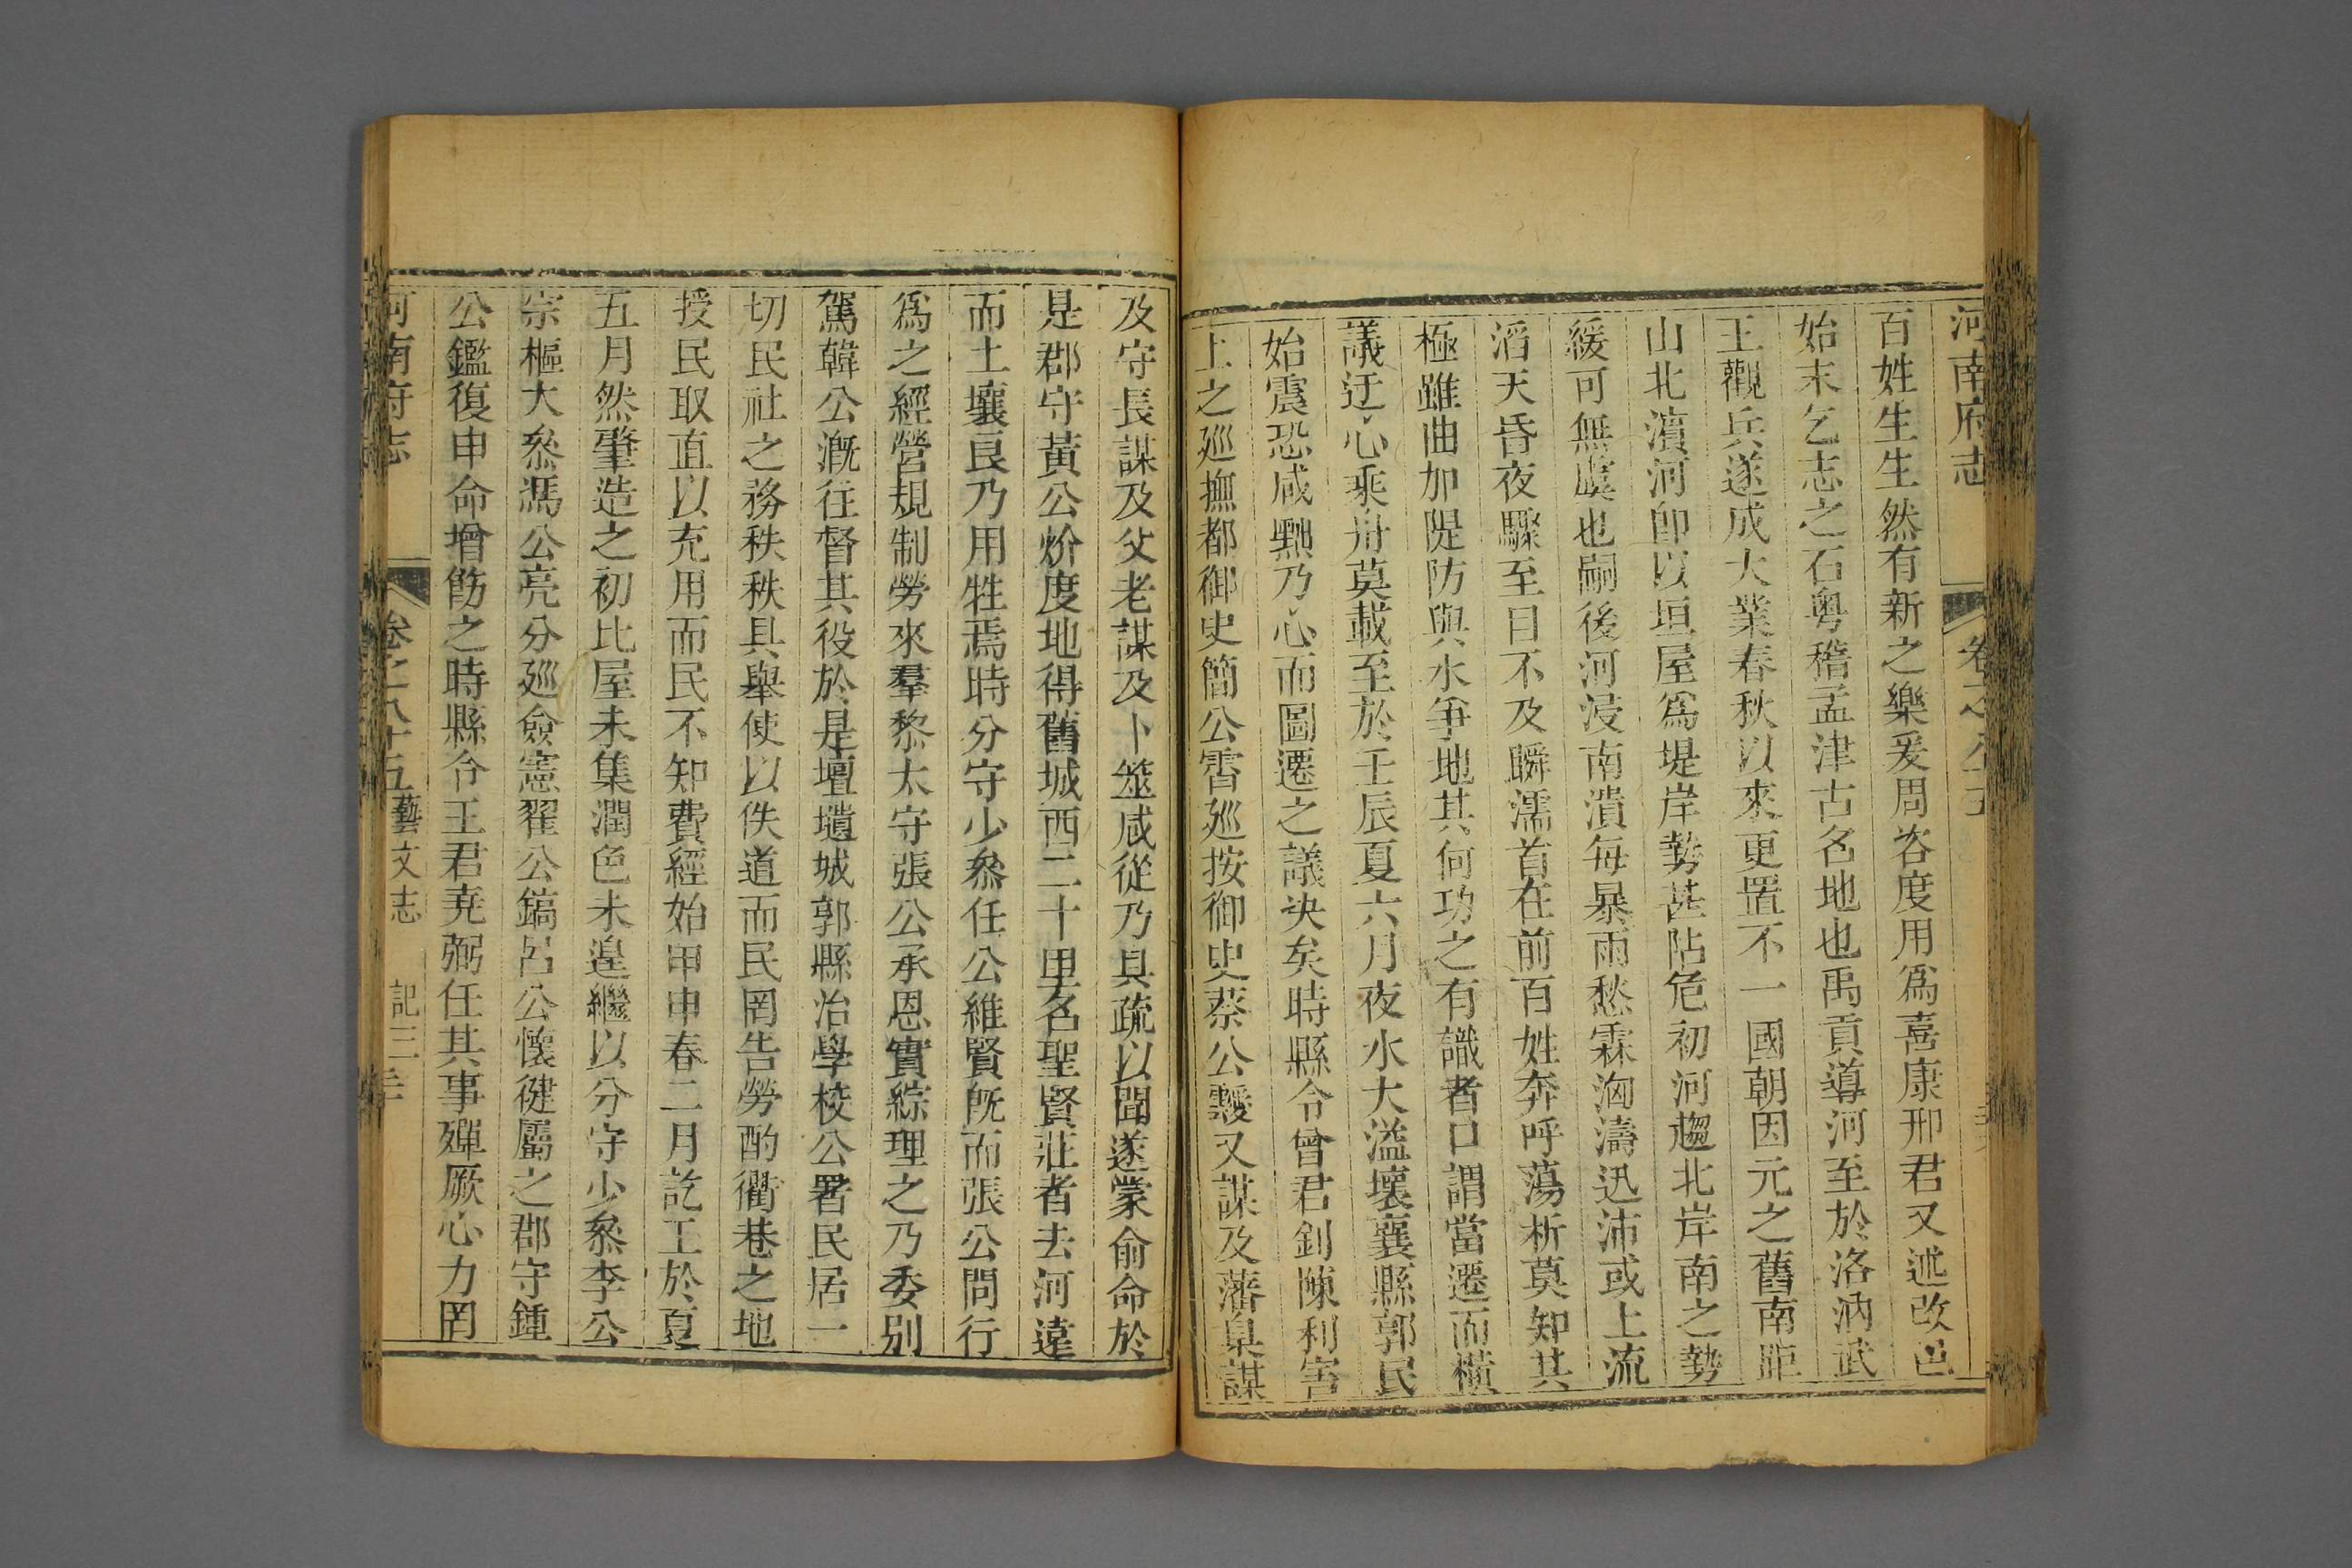 河南府志 卷之八十五
百姓生生然有新之樂爰周咨度用爲喜康邢君又述改邑
始末乞志之石粤稽孟津古名地也禹貢導河至於洛汭武
王觀兵遂成大業春秋以來更置不一國朝因元之舊南距
山北濱河卽以垣屋爲堤岸勢甚阽危初河趨北岸南之勢
緩可無虞也嗣後河浸南潰每暴雨愁霖洶濤迅沛或上流
滔天昏夜驟至日不及瞬濡首在前百姓奔呼蕩析莫知其
極雖曲加隄防與水爭地其何功之有識者口謂當遷而橫
議迂心乘舟莫載至於壬辰夏六月夜水大溢壞襄縣郭民
始震恐咸黽乃心而圖遷之議决矣時縣令曾君釗陳利害
上之廵撫都御史簡公霄廵按御史蔡公靉又謀及藩臬謀
及守長謀及父老謀及卜筮咸從乃具疏以聞遂蒙俞命於
是郡守黃公炌度地得舊城西二十里名聖賢莊者去河遠
而土壤良乃用牲焉時分守少叅任公維賢旣而張公問行
爲之經營規制勞來羣黎太守張公承恩實綜理之乃委別
駕韓公漑往督其役於是壇壝城郭縣治學校公署民居一
切民社之務秩秩具舉使以佚道而民罔告勞酌衢巷之地
授民取直以充用而民不知費經始甲申春二月訖工於夏
五月然肇造之初比屋未集潤色未遑繼以分守少叅李公
宗樞大叅馮公亮分廵僉憲翟公鎬呂公懷健屬之郡守鍾
公鑑復申命增飭之時縣令王君堯弼任其事殫厥心力罔
河南府志 卷之八十五 藝文志 記三